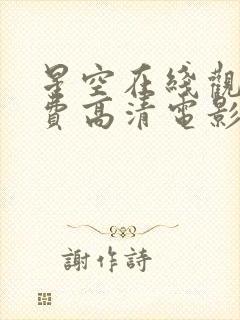 星空在綫觀
費高清電影
謝作詩